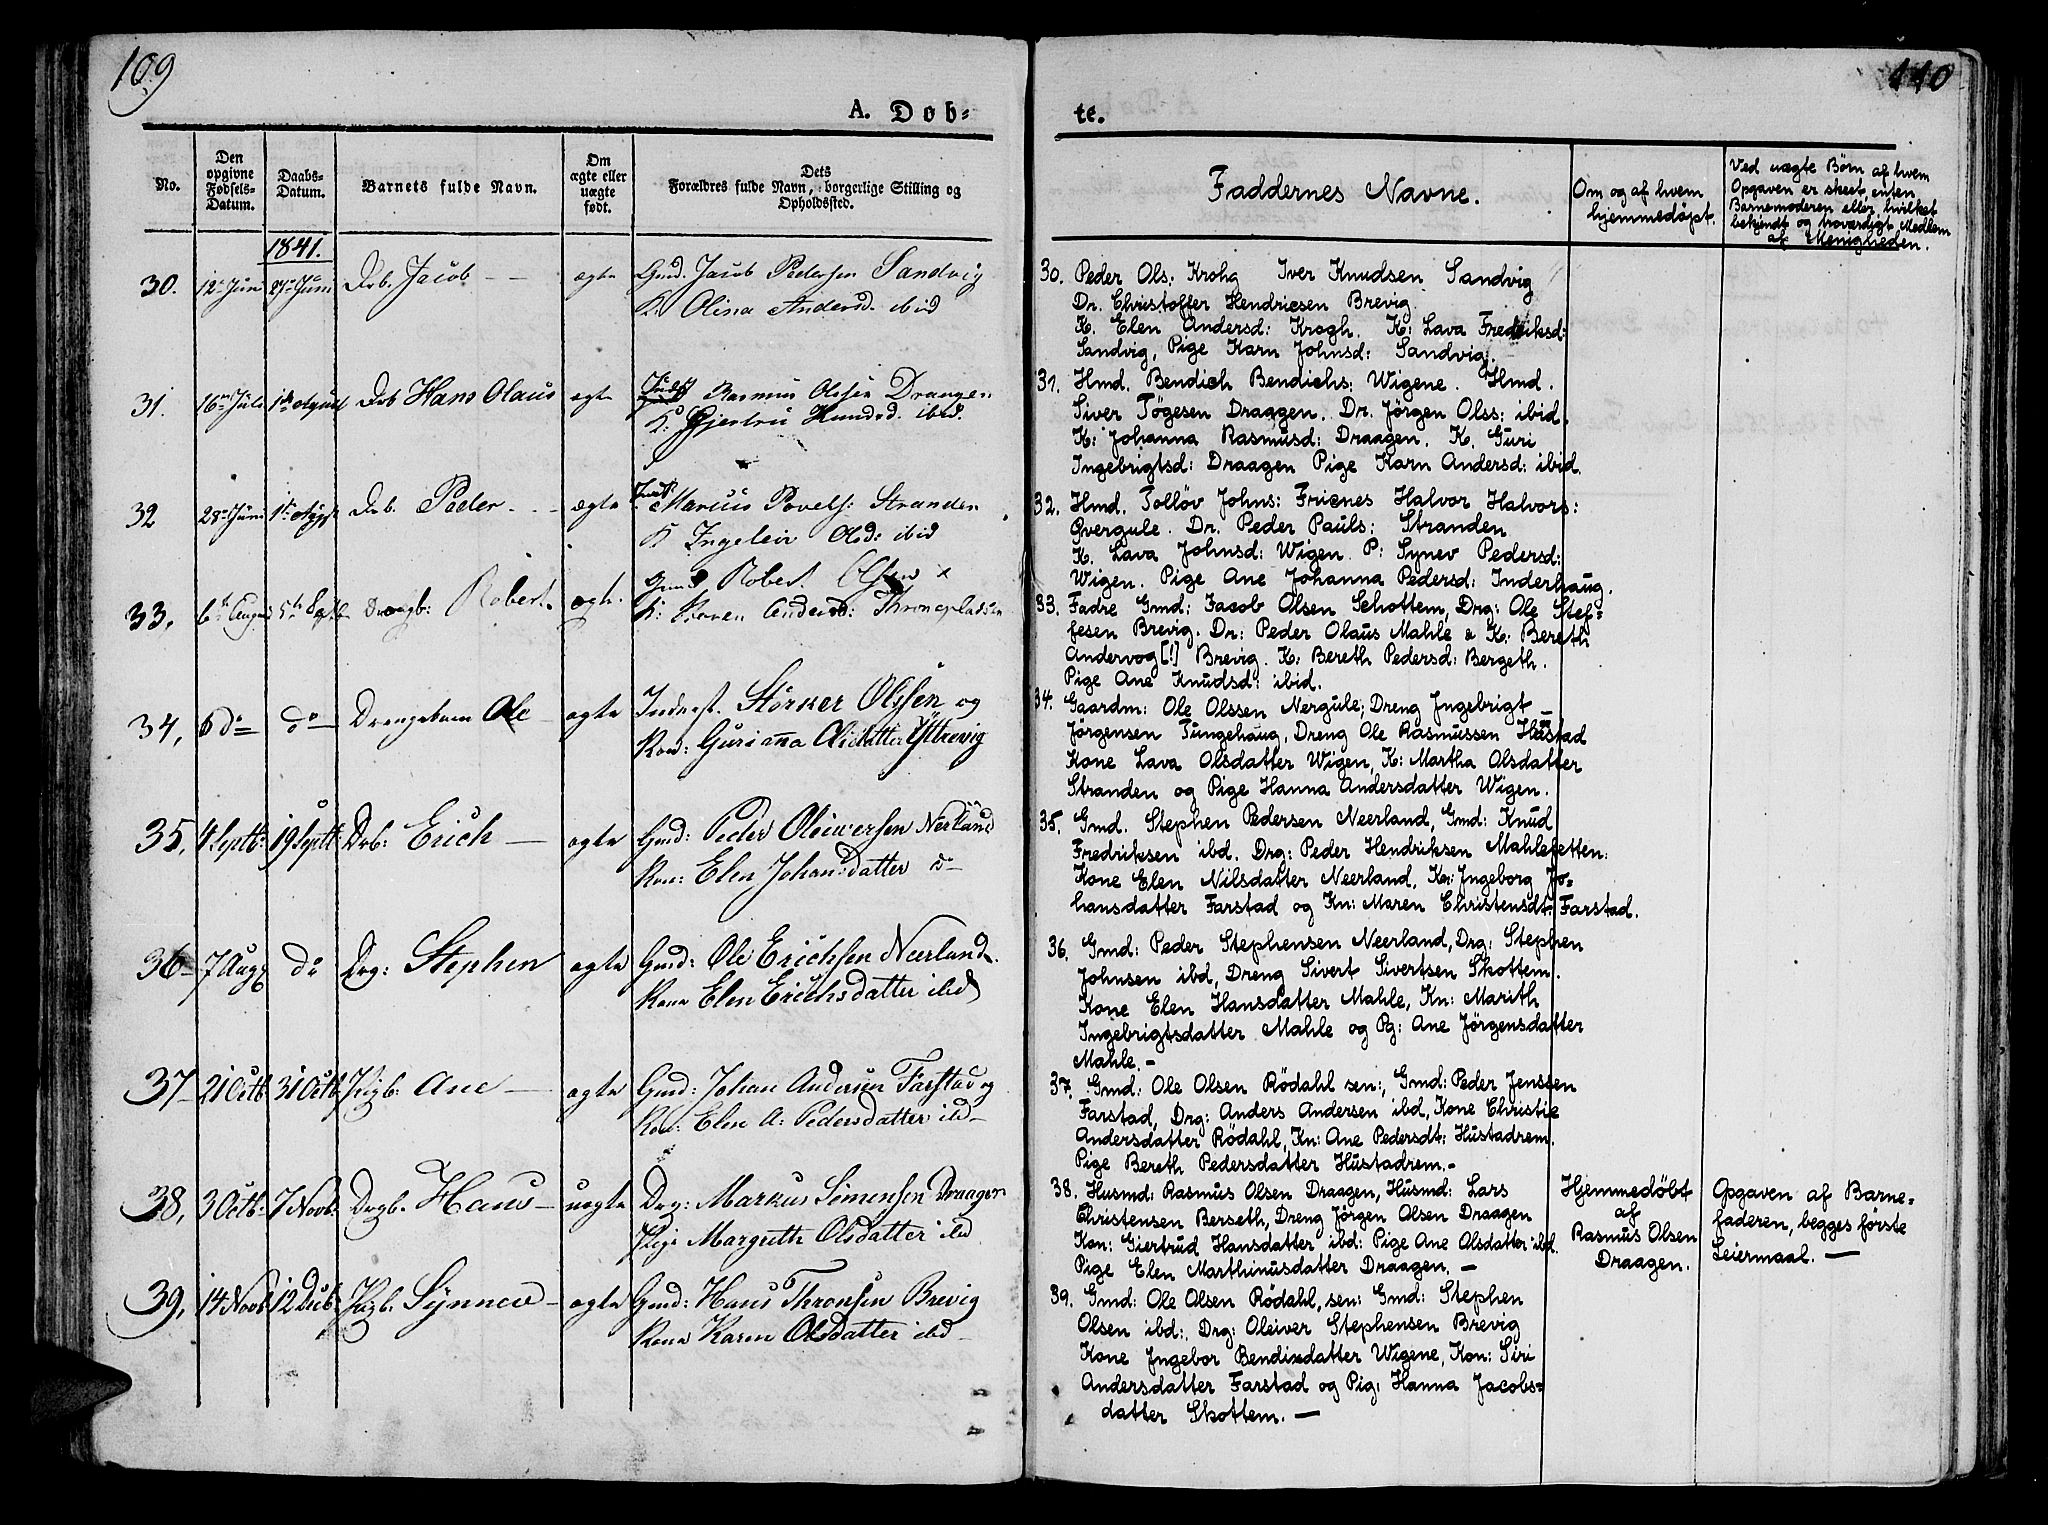 109
A. Døb-
No.
Den opgivne Fødsels-Datum.
Daabs-Datum.
Barnets fulde Navn.
Om ægte eller uægte født.
Dets Forældres fulde Navn, borgerlige Stilling og Opholdssted.
1841.
30. 12te Juni 27de Juni Drb. Jacob ægte Gmd. Jacob Pedersen Sandvig
K. Olina Andersd. ibid
31. 16de Juli 1ste August Drb Hans Olaus ægte Indst Rasmus Olssen Draagen
K: Gjertru Hansd. ibid.
32 28de Juni 1ste Augst Drb. Peder ægte Indst Marcus Povels: Stranden
K Ingeleiv Olsd: ibid
33. 6te August 5te Septb Drengb: Robert ægte Gmd Robert Olsen
K: Maren Andersd: Thronepladsen
34, 6 do do Drengebarn Ole ægte Inderst. Størker Olssen og
Kone: Gurianna Olsdatter Ytbrevig
35, 4 Septb: 19 Septb: Drb: Erich ægte Gmd: Peder Oleiversen Nerland
Kon: Elen Johansdatter do
36 7 Aug do Drg: Stephen ægte Gmd: Ole Erichsen Neerland
Kone Elen Erichsdatter ibd
37 21 Octb 31 Octb Pigb: Ane ægte Gmd: Johan Andersen Farstad og
Kon: Elen A: Pedersdatter ibd
38, 3 Octb: 7 Novb: Drgb. Hans uægte Drg: Markus Simensen Draagen
Pige Margreth Olsdatter ibd
39, 14 Novb 12 Decb: Pigb: Synnew ægte Gmd: Hans Thronsen Brevig
Kone Karen Olsdatter ibd
110
te.
Faddernes Navne.
Om og af hvem
hjemmedøpt.
Ved uægte Børn af hvem
Opgaven er skeet, enten
Barnemoderen eller hvilket
bekjendt og troværdigt Medlem
af Menigheden.
30. Peder Ols: Krohg Iver Knudsen Sandvig
Dr. Christoffer Hendricsen Brevig
K. Elen Andersd: Krogh. K: Lava Fredriksd:
Sandvig, Pige Karn Johnsd: Sandvig.
31. Hmd. Bendich Bendichs: Wigene. Hmd.
Siver Tøgesen Draagen. Dr. Jörgen Olss: ibid.
K: Johanna Rasmusd: Draagen. K. Guri
Ingebrigtsd: Draagen Pige Karn Andersd: ibid.
32. Hmd. Tollöv Johns: Fricnes Halvor Halvors:
Qvergule. Dr. Peder Pauls: Stranden
K. Lava Johnsd: Wigen. P: Synev Pedersd:
Wigen. Pige Ane Johanna Pedersd: Inderhaug.
33. Fadre Gmd: Jacob Olsen Schottem, Drg: Ole Stef-
fesen Brevig. Dr: Peder Olaus Mahle & K: Bereth
Andervog [!] Brevig. K: Bereth Pedersd: Bergeth.
Pige Ane Knudsd: ibid.
34. Gaardm: Ole Olssen Nergule; Dreng Ingebrigt —
Jörgensen Tungehaug, Dreng Ole Rasmussen Hustad
Kone Lava Olsdatter Wigen, K: Martha Olsdatter
Stranden og Pige Hanna Andersdatter Wigen.
35. Gmd. Stephen Pedersen Neerland, Gmd: Knud
Fredriksen ibd. Drg: Peder Hendriksen Mahlesetten:
Kone Elen Nilsdatter Neerland, Kn: Ingeborg Jo-
hansdatter Farstad og Kn: Maren Christensdt: Farstad.
36. Gmd: Peder Stephensen Neerland, Drg: Stephen
Johnsen ibd, Dreng Sivert Sivertsen Skottem.
Kone Elen Hansdatter Mahle, Kn: Marith
Ingebrigtsdatter Mahle og Pg: Ane Jörgensdatter
Mahle. -
37. Gmd: Ole Olsen Rödahl sen:, Gmd: Peder Jenssen
Farstad, Drg: Anders Andersen ibd, Kone Christie
Andersdatter Rödahl, Kn: Ane Pedersdt: Hustadrem.
Pige Bereth Pedersdatter Hustadrem. -
38. Husmd: Rasmus Olsen Draagen, Husmd: Lars
Christensen Berseth, Dreng Jörgen Olsen Draagen
Kon: Giertrud Hansdatter ibd: Pige Ane Olsdatter ibd.
Pige Elen Marthinusdatter Draagen. —
Hjemmedöbt
af
Rasmus Olsen
Draagen.
Opgaven af Barne-
faderen, begges förste
Leiermaal. —
39. Gmd: Ole Olsen Rödahl, sen: Gmd: Stephen
Olsen ibd:, Drg: Oleiver Stephensen Brevig
Kone Ingebor Bendixdatter Wigene, Kon: Siri
Andersdatter Farstad og Pig: Hanna Jacobs-
datter Skottem. —